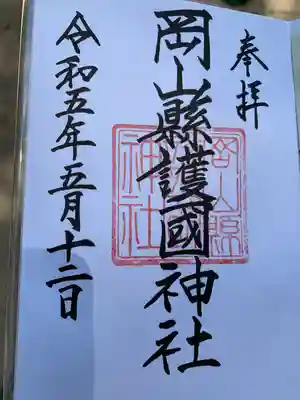 奉拝
岡山縣護國神社
岡山縣
神社
令和五年五月十二日